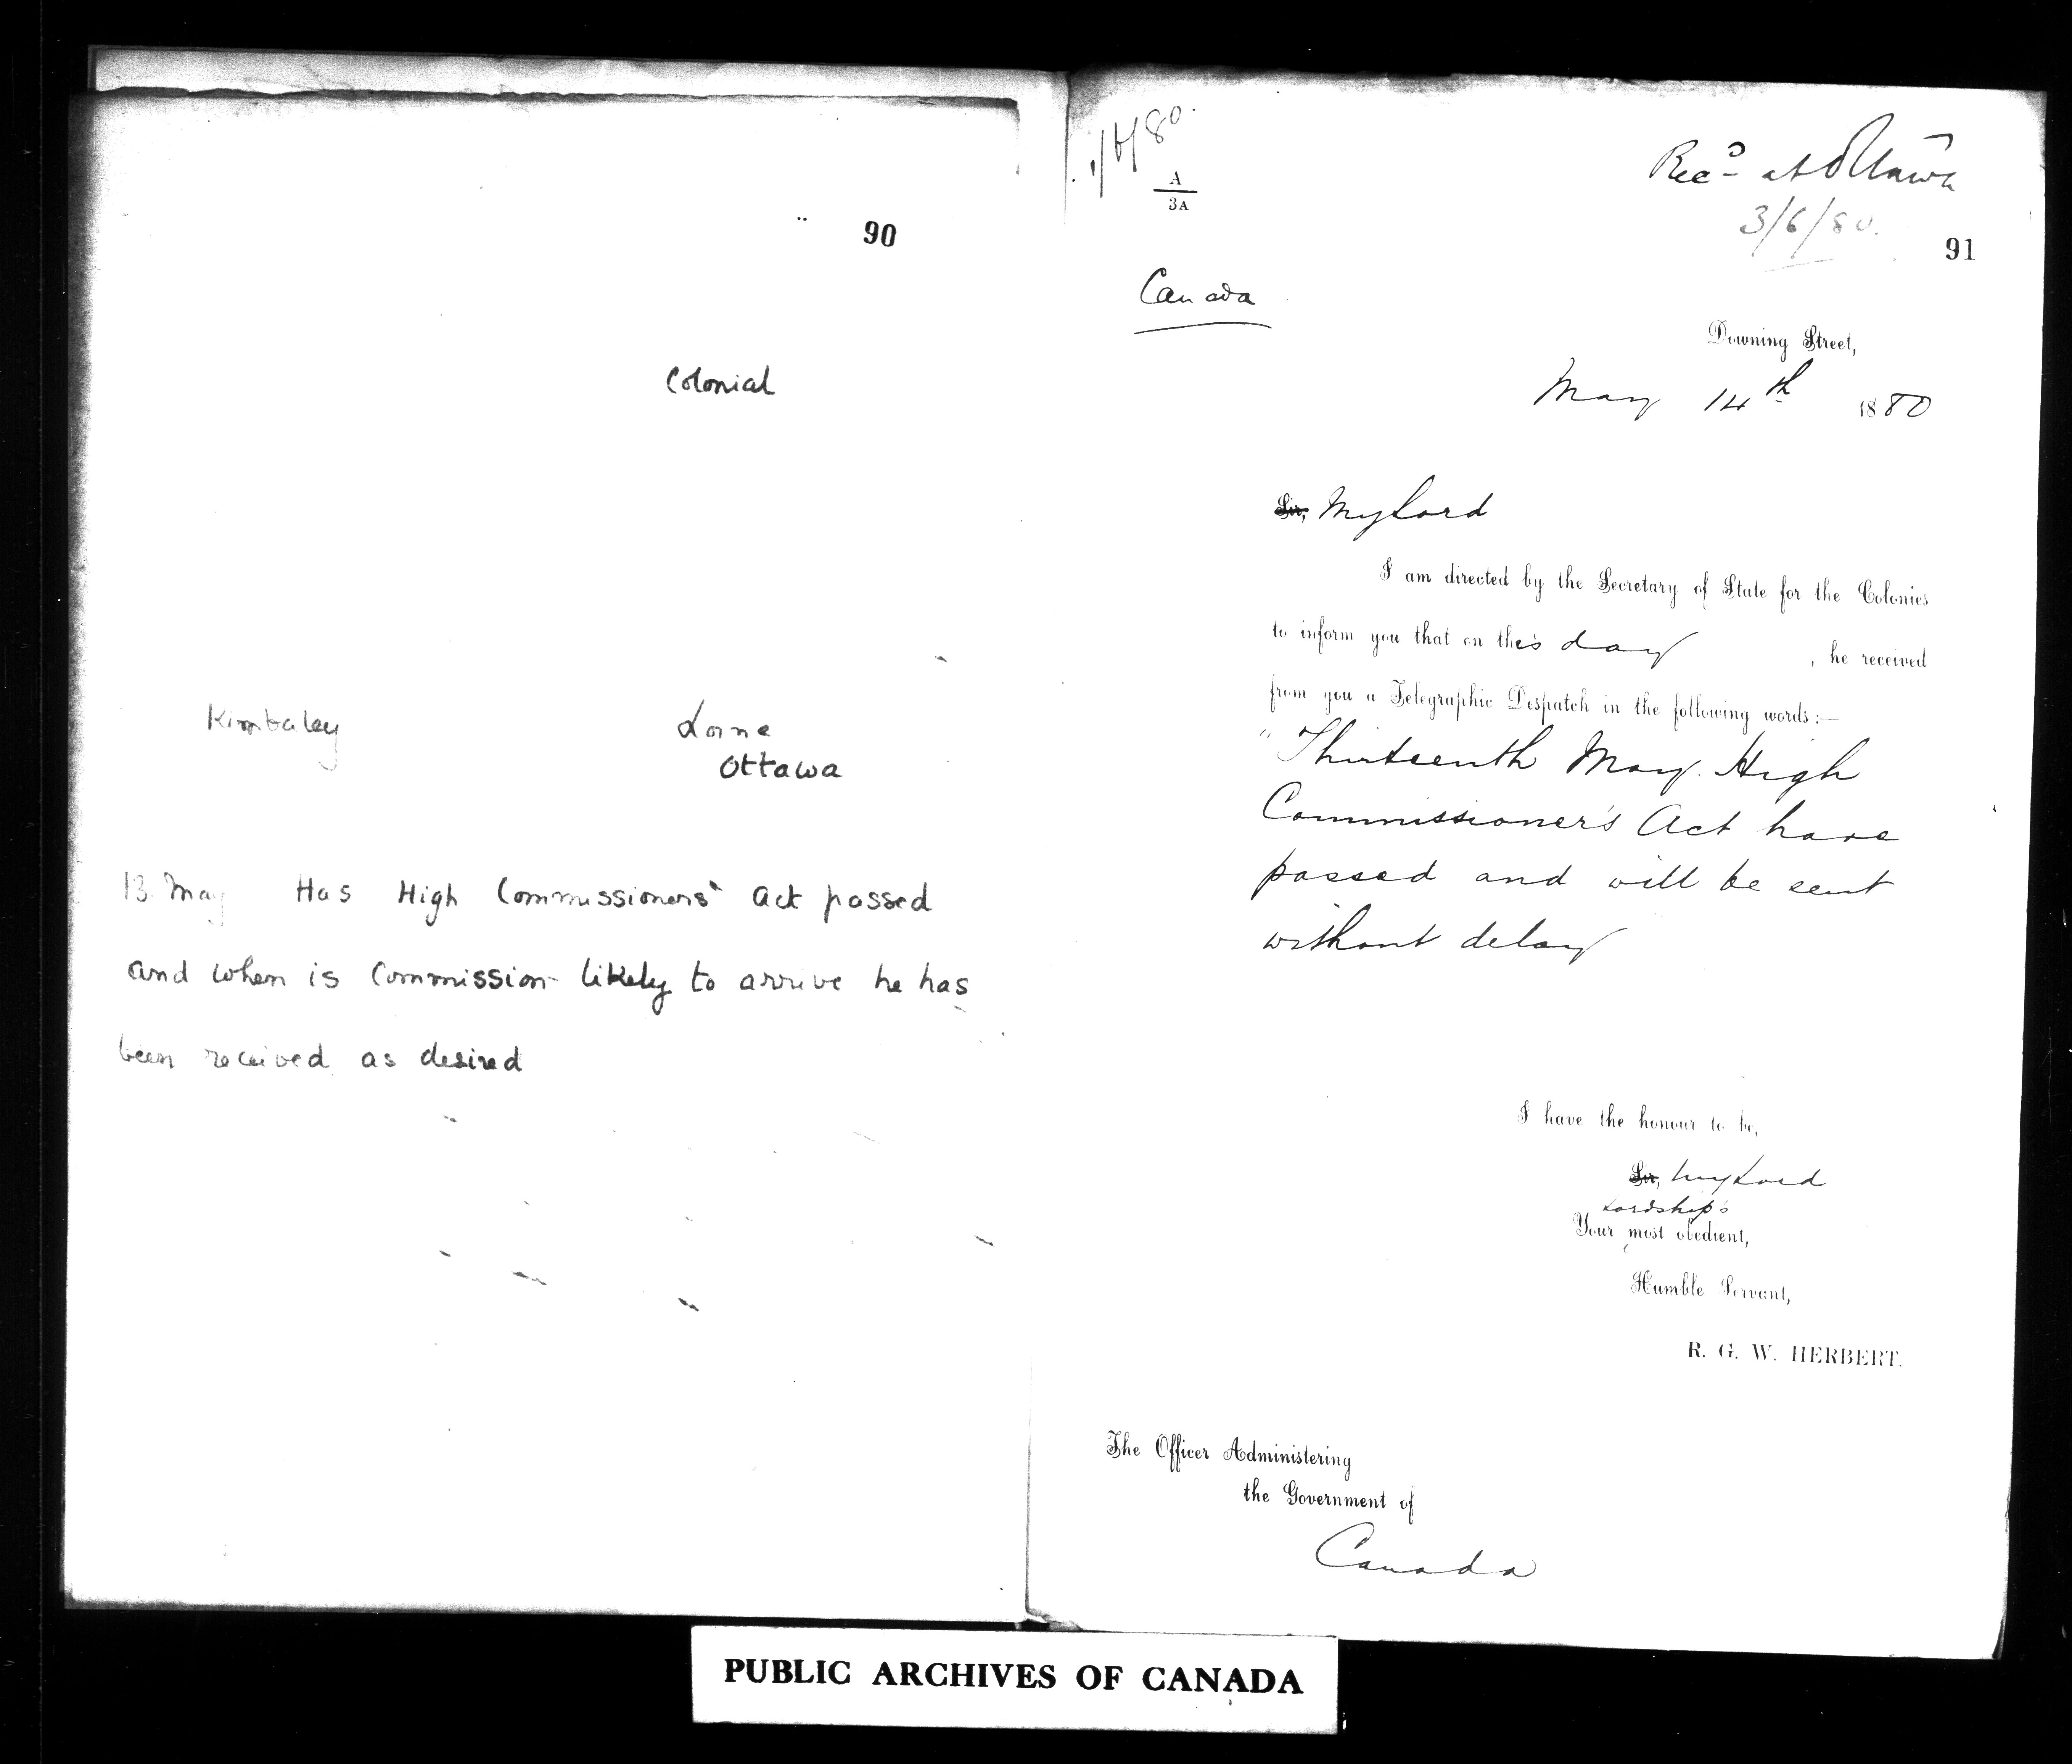 90
Colonial
Kimbaley
Lorne
Ottawa
13 May Has High Commissioners' Act passed
and when is Commission likely to arrive he has
been received as desired
A
3A
Recd at Ottawa
3/6/80.
91
Canada
Downing Street,
May 14th 1880
Sir, My Lord
I am directed by the Secretary of State for the Colonies
to inform you that on this day , he received
from you a Telegraphic Despatch in the following words:—
"Thirteenth May. High
Commissioner's Act have
passed and will be sent
without delay
I have the honour to be,
Sir, My Lord
Lordship's
Your most obedient,
Humble Servant,
R. G. W. HERBERT.
The Officer Administering
the Government of
Canada
PUBLIC ARCHIVES OF CANADA